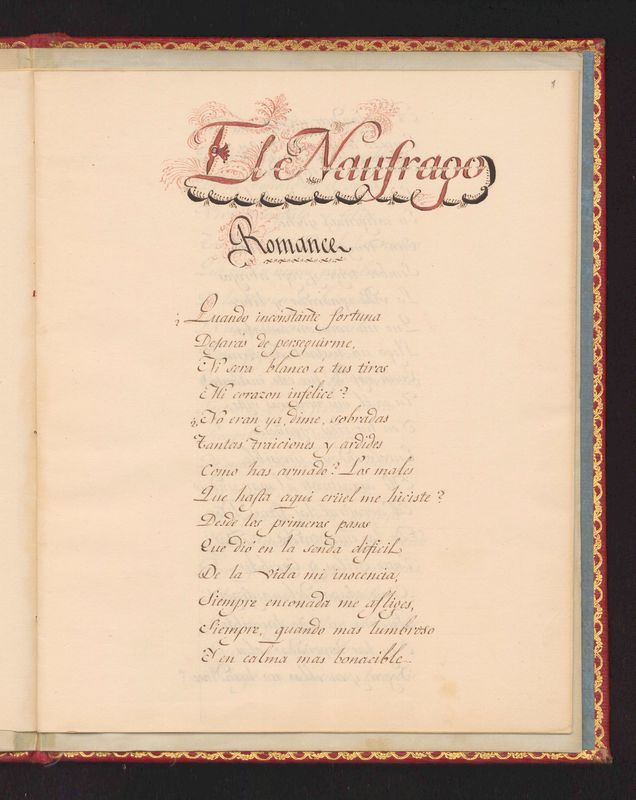 1
El Naufrago
Romance
¿Quando inconstante fortuna
Dejarás de perseguirme,
Ni será blanco á tus tiros
Mi corazon infelice?
¿No eran ya, dime, sobradas
Tantas traiciones y ardides
Como has armado? Los males
Que hasta aqui crüel me hiciste?
Desde los primeros pasos
Que dió en la senda dificil
De la vida mi inocencia,
Siempre enconada me afliges,
Siempre, quando mas lumbroso
Y en calma mas bonacible